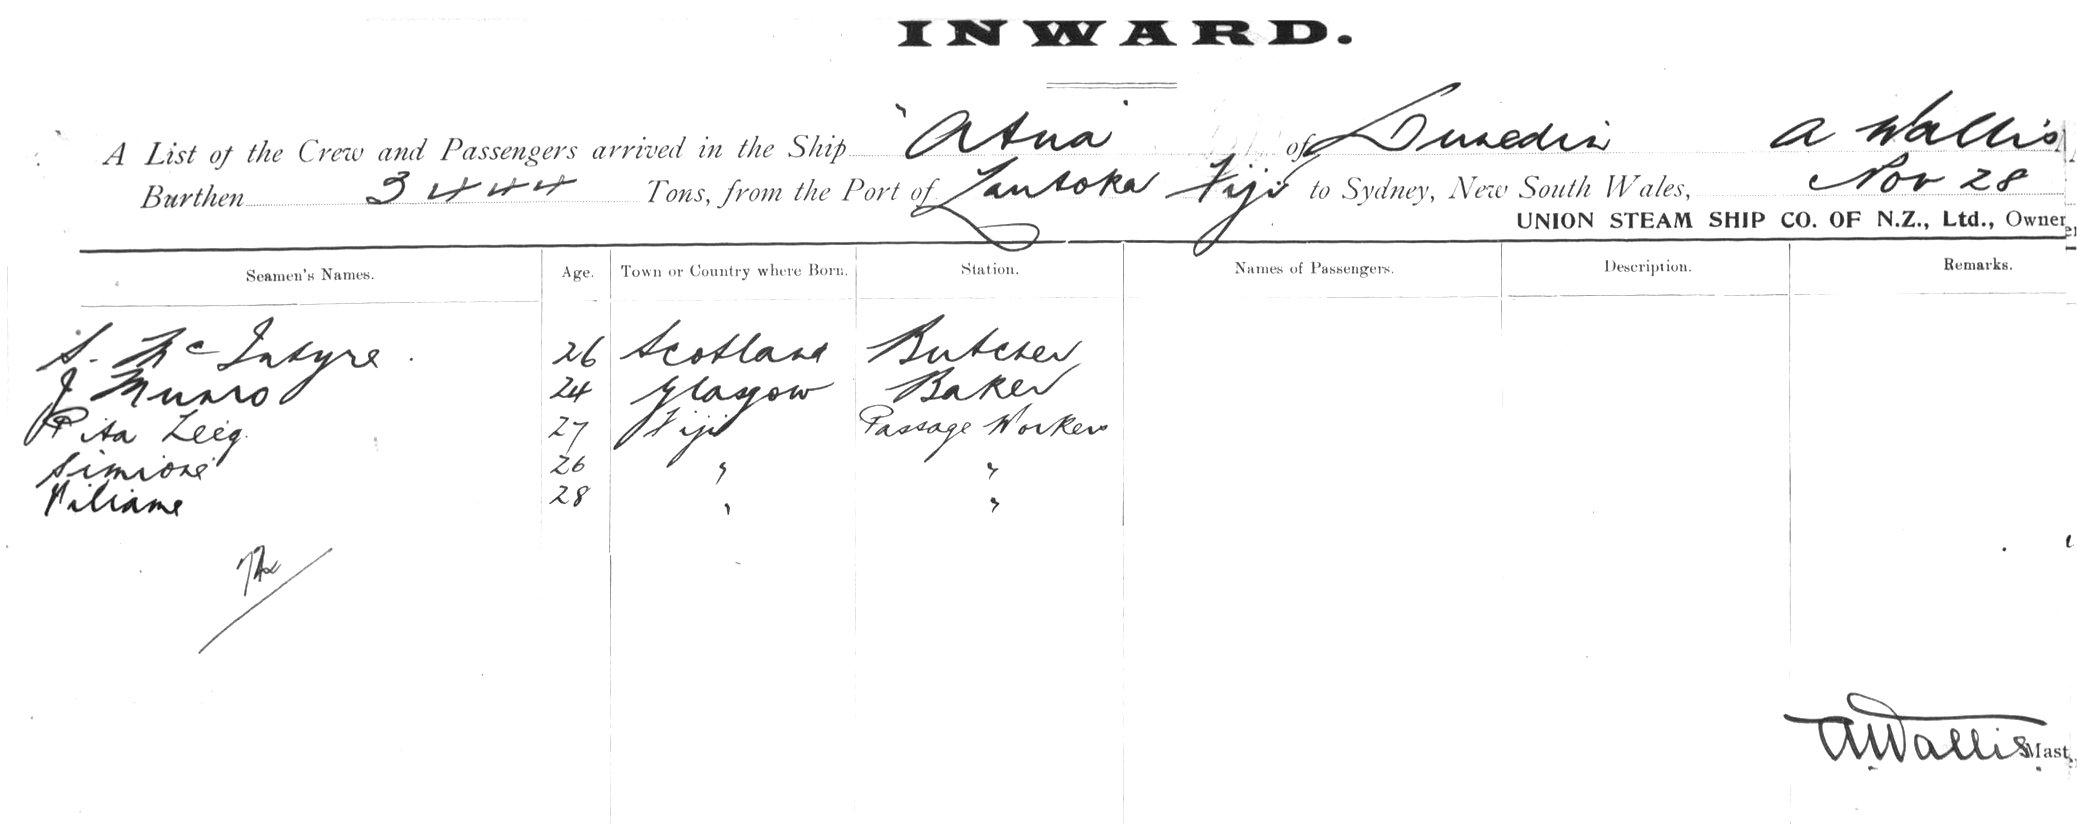 INWARD.
A List of the Crew and Passengers arrived in the Ship "Atua" of Dunedin A Wallis
Burthen 3444 Tons, from the Port of Lautoka Fiji to Sydney, New South Wales, Nov 28
UNION STEAM SHIP CO. OF N.Z., Ltd., Owner
Seamen's Names. Age. Town or Country where Born. Station. Names of Passengers. Description. Remarks.
S. McIntyre. 26 Scotland Butcher
J Munro 24 Glasgow Baker
Pita 27 Fiji Passage Worker
Simione 26 " "
Viliame 28 " "
AWallis Mast